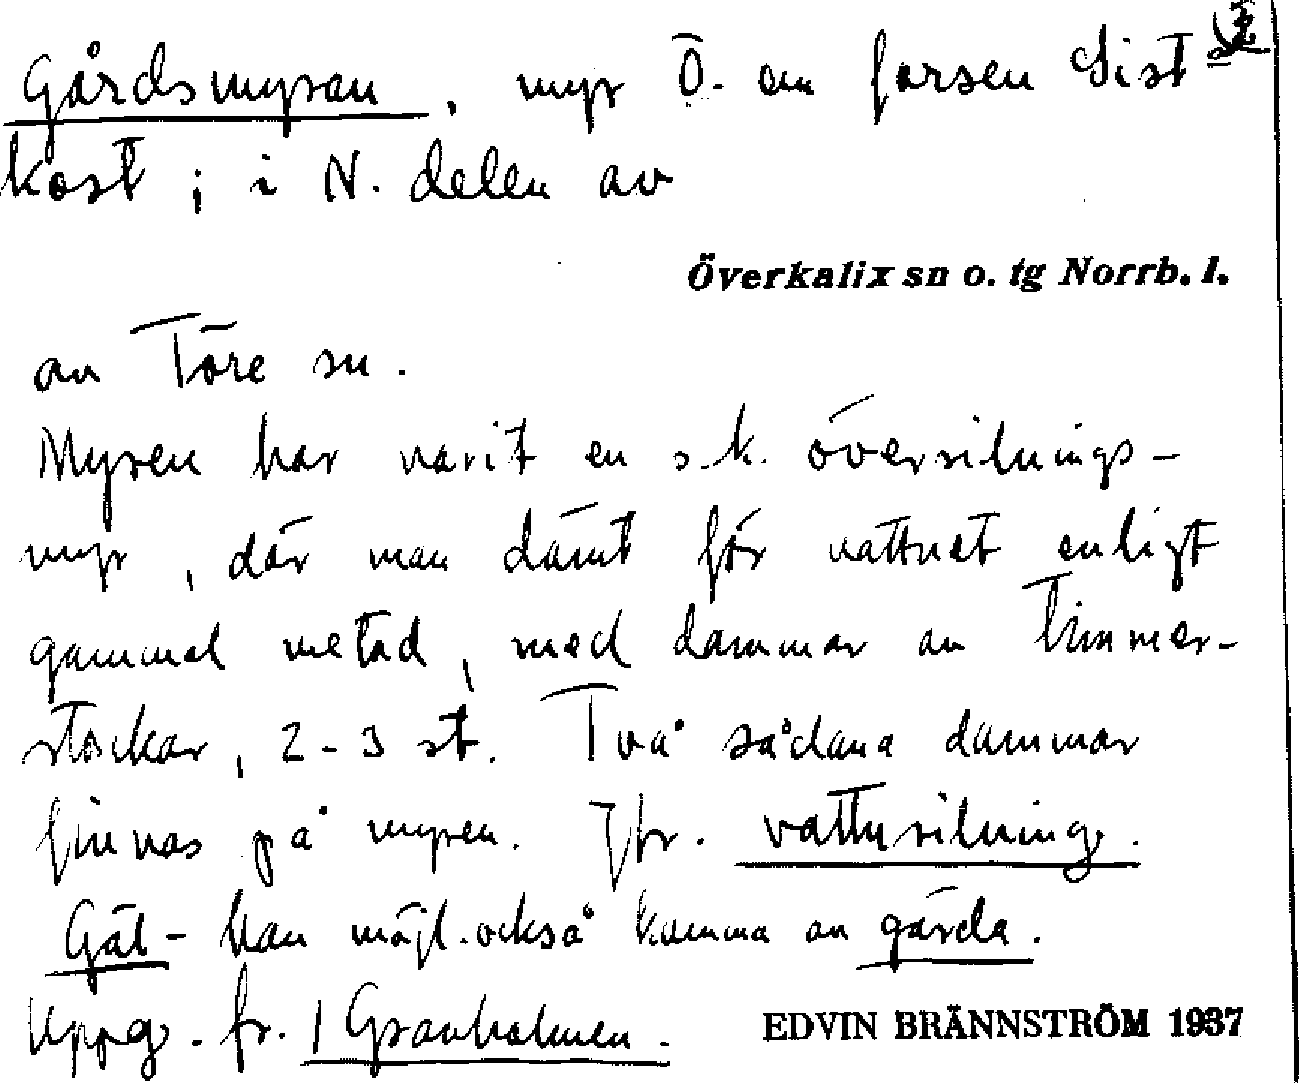 Gårdsmyran, myr Ö. om forsen Sist
kost; i N. delen av
Överkalix sn o. tg Norrb. l.
av Töre sn.
Myren har varit en s.k. översilnings-
myr, där man dämt för vattnet enligt
gammal metod, med dammar av timmer-
stockar, 2-3 st. Två sådana dammar
finnas på myren. Jfr. vattusilning.
Gäl- kan möjl. också komma av gärda.
Uppg. fr. 1 Granholmen.
EDVIN BRÄNNSTRÖM 1937